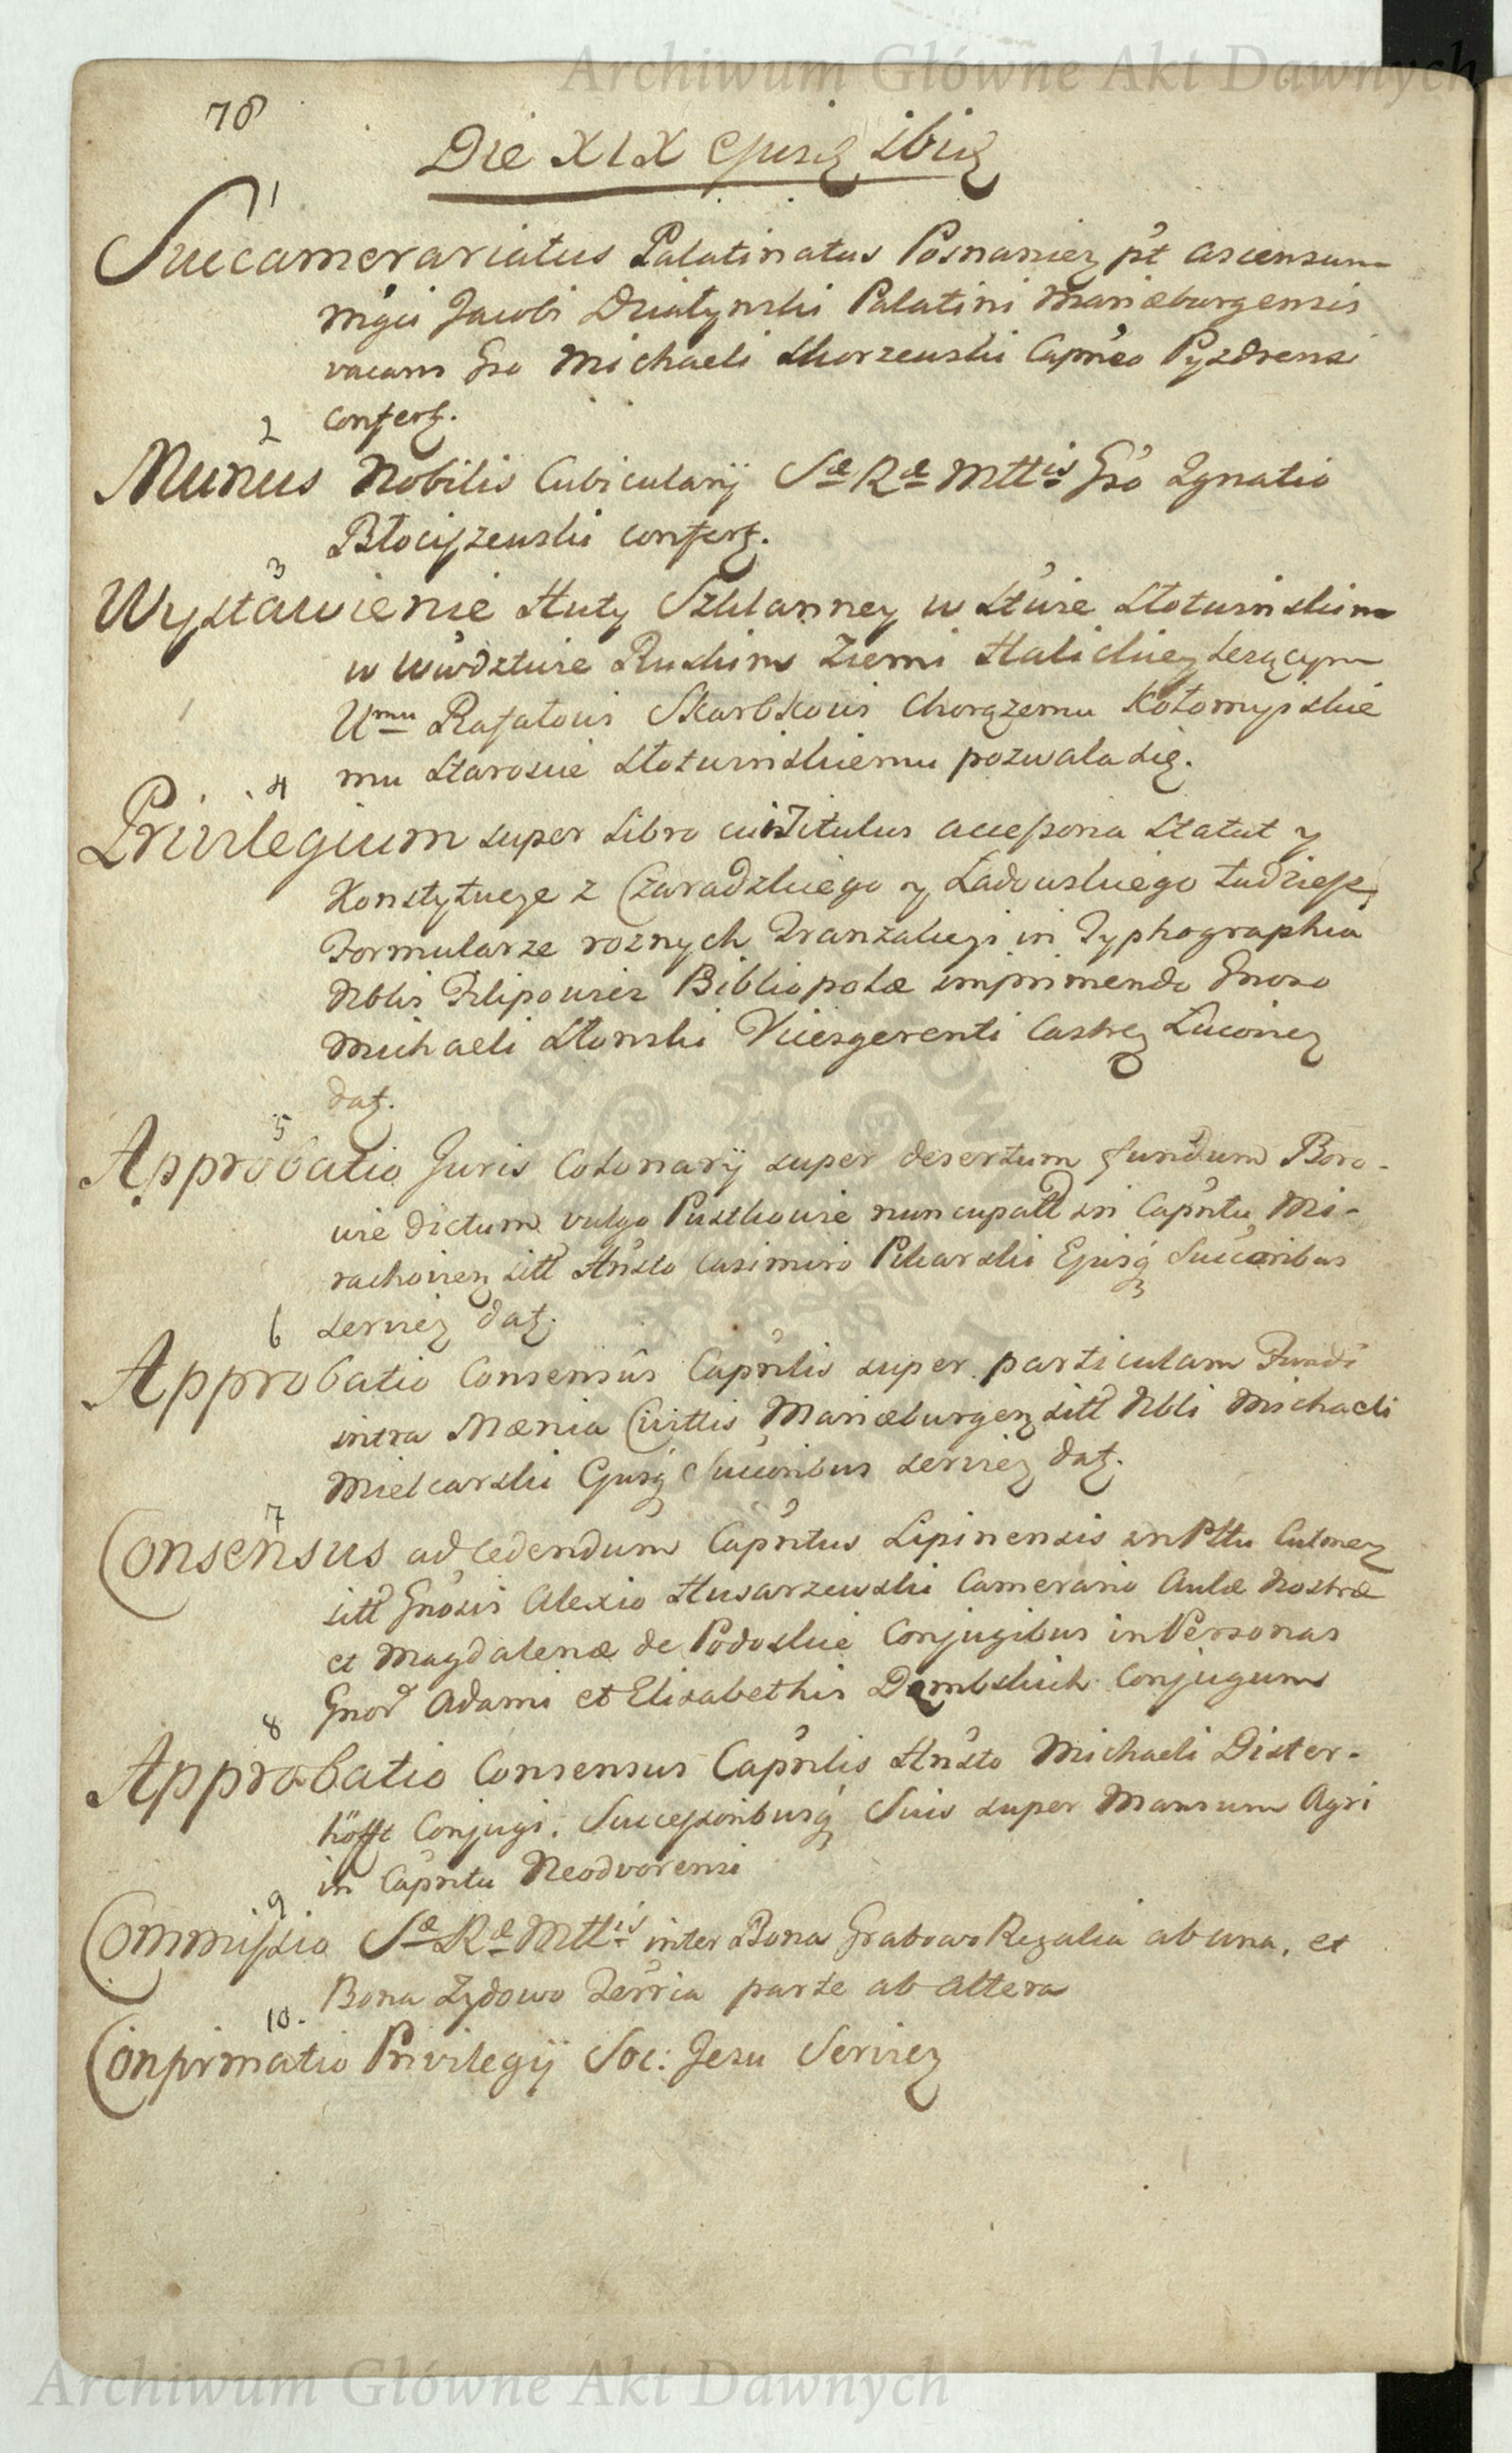 Archiwum Główne Akt Dawnych
78
Die XIX ejusdę ibidę
1
Succamerariatus Palatinatus Posnanieę pt ascensum
Mgci Jacobi Działynski Palatini Mariæburgensis
vacans Gso Michaeli Skorzewski Capneo Pyzdrensi
confertę.
2
Munus Nobilis Cubicularij Sæ Ræ Mttis Gso Ignatio
Błociszewski confertę.
3
Wystawienie Huty Szklanney w Stwie Słotwinskim
w Wwdztwie Ruskim Ziemi Halickiey Leżącym
Umu Rafałowi Skarbkowi Chorążemu Kołomyiskie
mu Staroscie Słotwinskiemu pozwala się.
4
Privilegium super Libro cui Titulus accessoria Statut y
Konstytucye z Czaradzkiego y Ładowskiego tudziesz
Formularze roznych Tranzakcyi in Typhographia
Nblis Filipowicz Bibliopolæ imprimendo Gnoso
Michaeli Słonski Vicesgerenti Castrę Luconieę
datę.
5
Approbatio Juris Colonarij super desertum fundum Boro-
wie dictum vulgo Pustkowie nuncupatt in Capntu Mi-
rachovieę sitt Hnsto Casimiro Pikarski Ejusq Succoribus
servieę datę.
6
Approbatio Consensûs Capnlis super particulam Fundi
intra Mænia Civittis Mariæburgeę sitt Nbli Michaeli
Mielcarski Ejusq Succoribus servieę datę.
7
Consensus ad cedendum Capntus Lipinensis in Pttu Culmeę
sitt Gnosis Alexio Husarzewski Camerario Aulæ Nostræ
et Magdalenæ de Podoskie Conjugibus in Personas
Gnor Adami et Elisabethis Dąmbskich Conjugum
8
Approbatio Consensus Capnlis Hnsto Michaeli Dister-
höfft Conjugi. Successoribusq Suis super Mansum Agri
in Capntu Neodvorensi
9
Commissio Sæ Ræ Mttis inter Bona Grabowo Regalia ab una, et
Bona Zydowo Terria parte ab altera
10.
Confirmatio Privilegij Soc: Jesu Servieę
Archiwum Główne Akt Dawnych